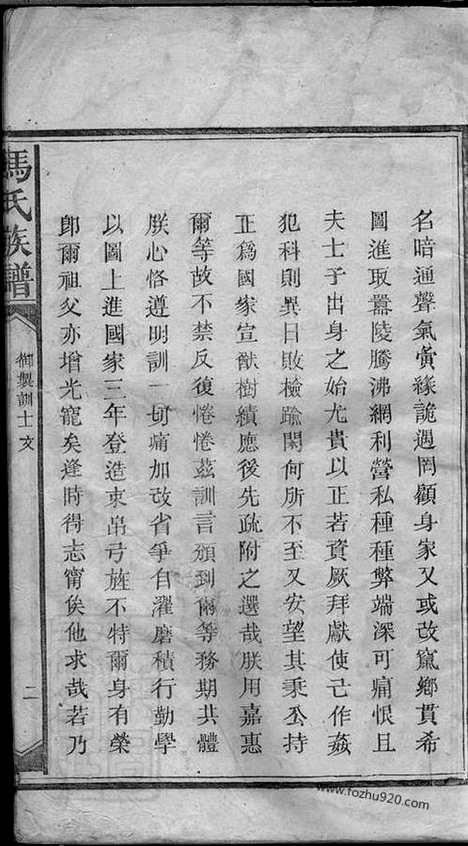 名暗通聲氣夤緣詭遇罔顧身家又或改竄鄉貫希
圖進取囂陵騰沸網利營私種種弊端深可痛恨且
夫士子出身之始尤貴以正若資厥拜獻使已作姦
犯科則異日敗檢踰閑何所不至又安望其秉公持
正為國家宣猷樹績膺後先疏附之選哉朕用嘉惠
爾等故不禁反復惓惓茲訓言頒到爾等務期共體
朕心恪遵明訓一切痛加改省爭自濯磨積行勤學
以圖上進國家三年登造束帛弓旌不特爾身有榮
即爾祖父亦增光寵矣逢時得志甯俟他求哉若乃
馮氏族譜
御製訓士文
二
www.fozhu920.com